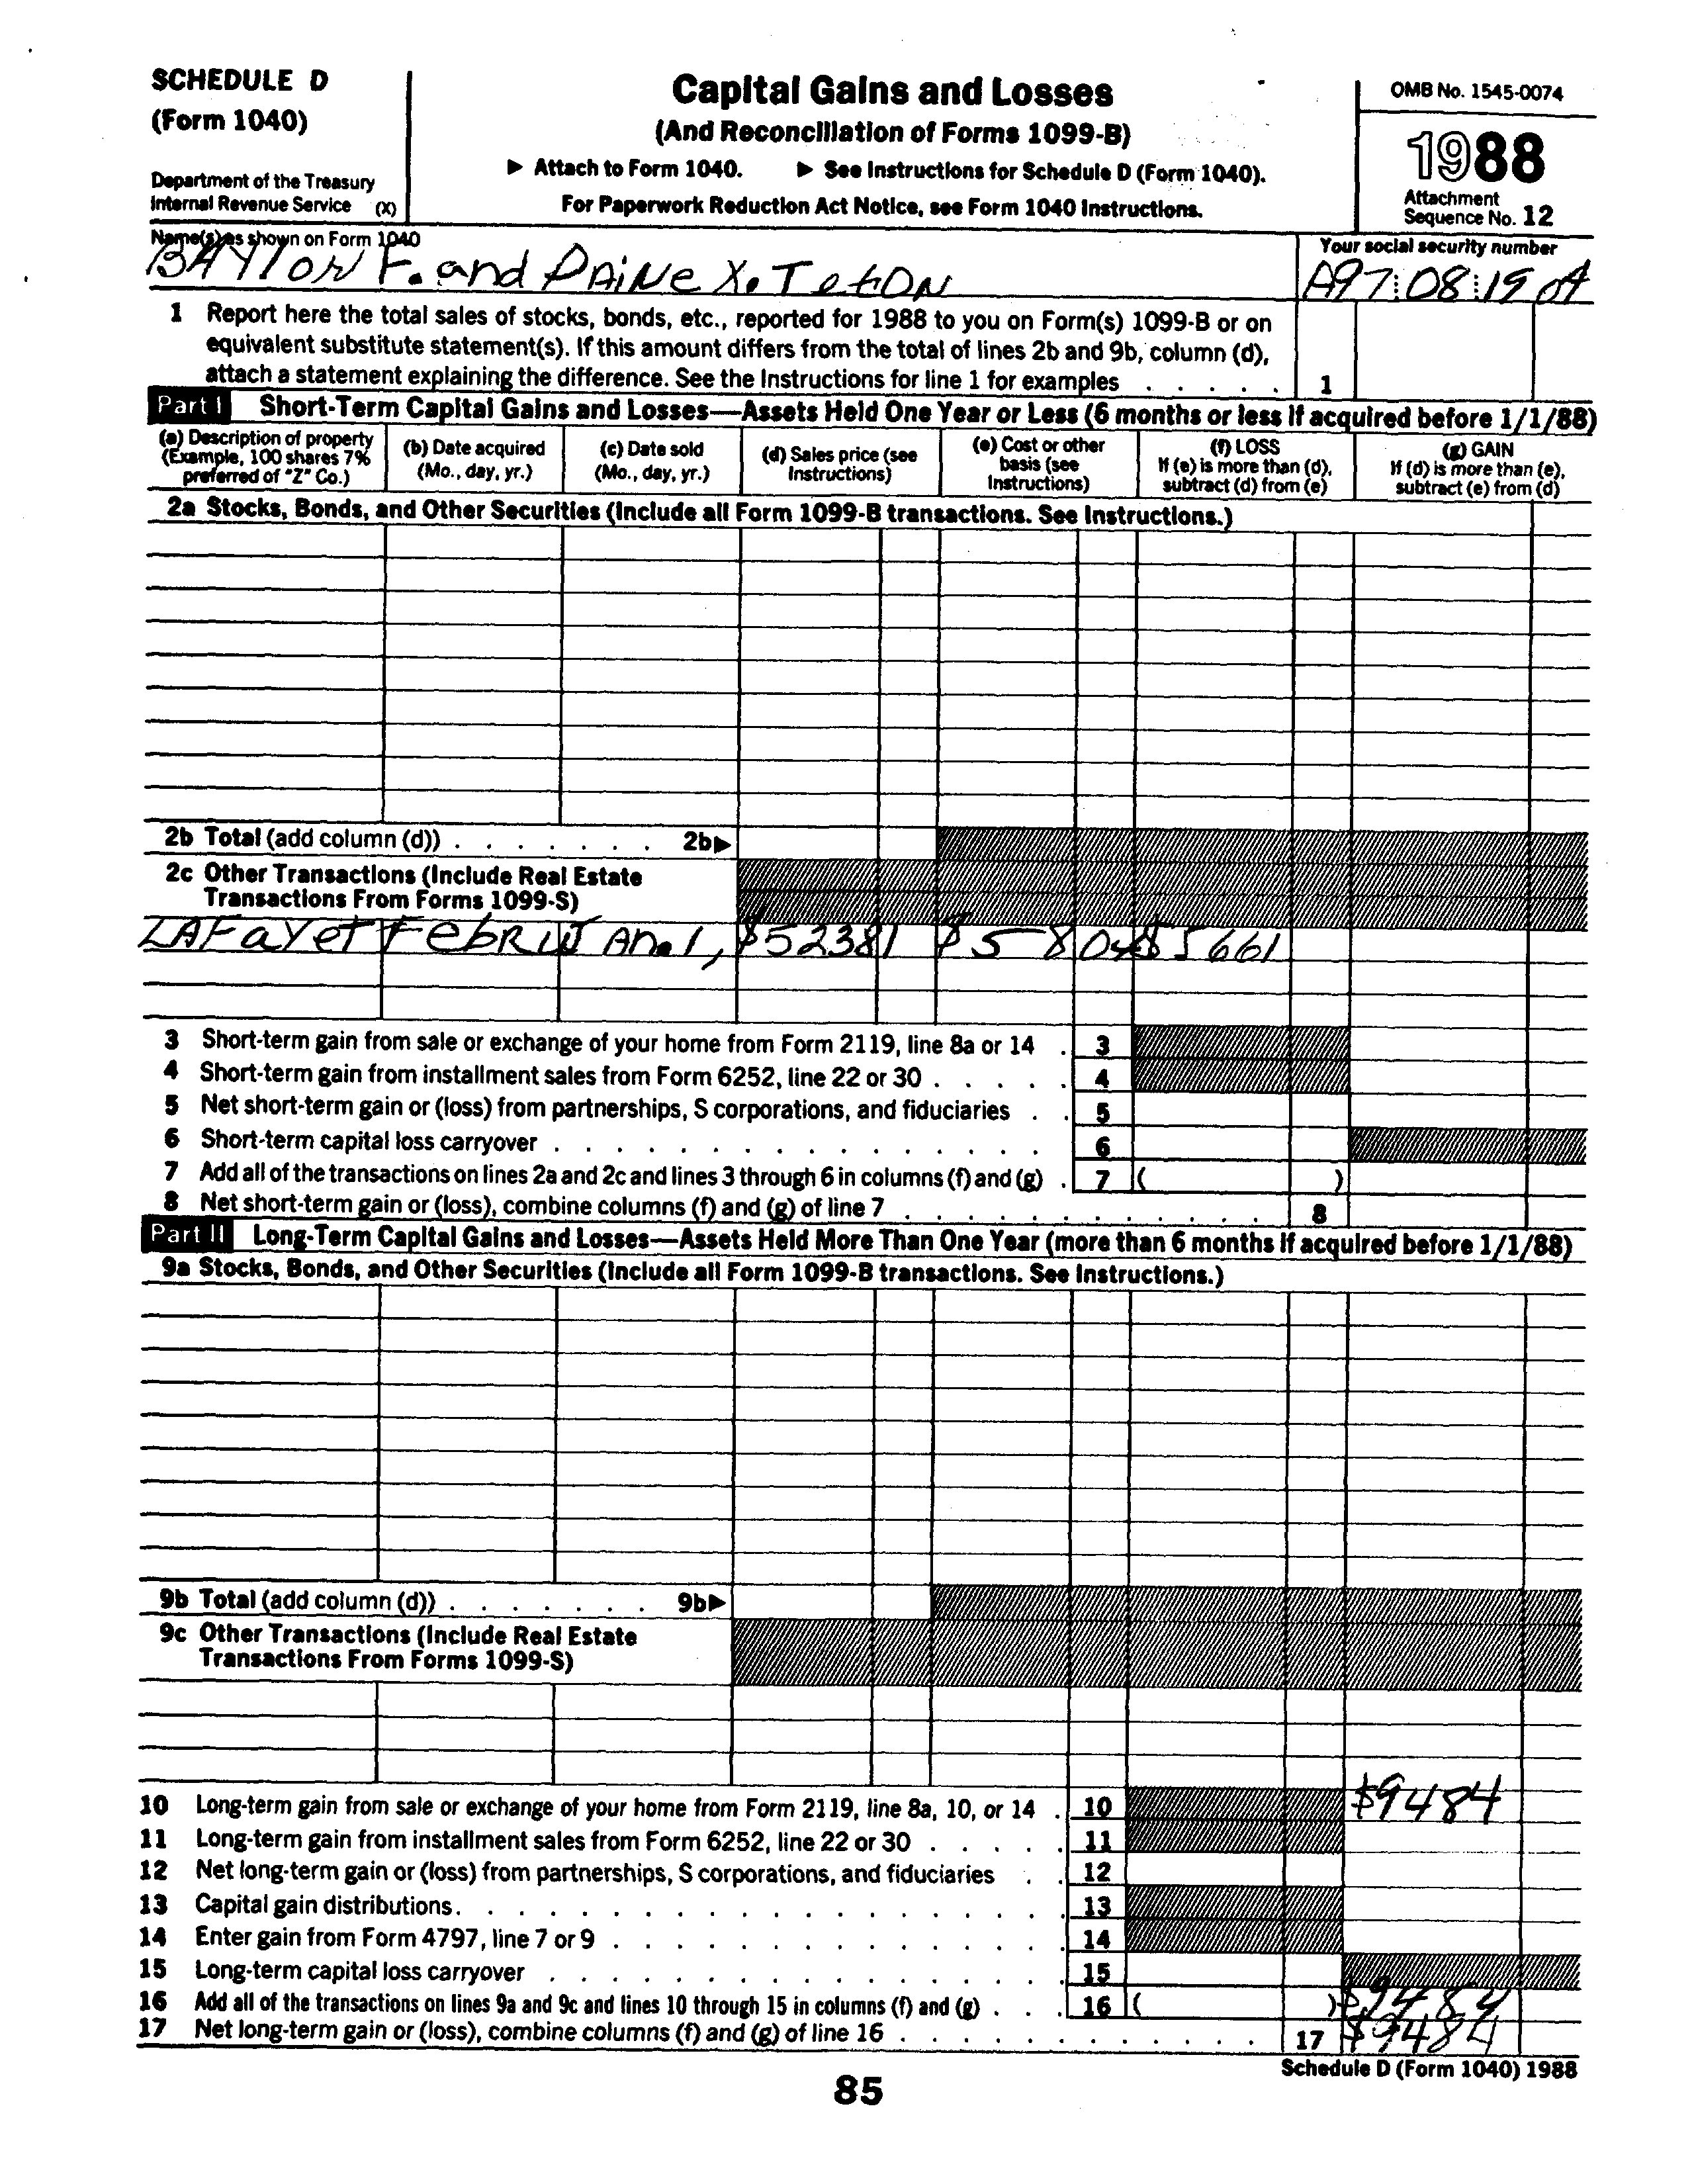 SCHEDULE D
(Form 1040)
Department of the Treasury
Internal Revenue Service (X)
Capital Gains and Losses
(And Reconciliation of Forms 1099-B)
▶ Attach to Form 1040. ▶ See Instructions for Schedule D (Form 1040).
For Paperwork Reduction Act Notice, see Form 1040 Instructions.
OMB No. 1545-0074
1988
Attachment
Sequence No. 12
Name(s) as shown on Form 1040
BAYlOR F. and PAiNe X. TetON
Your social security number
A97 08 19 04
1 Report here the total sales of stocks, bonds, etc., reported for 1988 to you on Form(s) 1099-B or on
equivalent substitute statement(s). If this amount differs from the total of lines 2b and 9b, column (d),
attach a statement explaining the difference. See the Instructions for line 1 for examples . . . . . 1
Part I Short-Term Capital Gains and Losses—Assets Held One Year or Less (6 months or less if acquired before 1/1/88)
(a) Description of property
(Example, 100 shares 7%
preferred of "Z" Co.)
(b) Date acquired
(Mo., day, yr.)
(c) Date sold
(Mo., day, yr.)
(d) Sales price (see
Instructions)
(e) Cost or other
basis (see
Instructions)
(f) LOSS
If (e) is more than (d),
subtract (d) from (e)
(g) GAIN
If (d) is more than (e),
subtract (e) from (d)
2a Stocks, Bonds, and Other Securities (Include all Form 1099-B transactions. See Instructions.)
2b Total (add column (d)) . . . . . . . 2b▶
2c Other Transactions (Include Real Estate
Transactions From Forms 1099-S)
LAFayet FebRU $52381 $5661
3 Short-term gain from sale or exchange of your home from Form 2119, line 8a or 14 . 3
4 Short-term gain from installment sales from Form 6252, line 22 or 30 . . . . . 4
5 Net short-term gain or (loss) from partnerships, S corporations, and fiduciaries . . 5
6 Short-term capital loss carryover . . . . . . . . . . . . . . . . 6
7 Add all of the transactions on lines 2a and 2c and lines 3 through 6 in columns (f) and (g) . 7 ( )
8 Net short-term gain or (loss), combine columns (f) and (g) of line 7 . . . . . . . . . . . . 8
Part II Long-Term Capital Gains and Losses—Assets Held More Than One Year (more than 6 months if acquired before 1/1/88)
9a Stocks, Bonds, and Other Securities (Include all Form 1099-B transactions. See Instructions.)
9b Total (add column (d)) . . . . . . . 9b▶
9c Other Transactions (Include Real Estate
Transactions From Forms 1099-S)
10 Long-term gain from sale or exchange of your home from Form 2119, line 8a, 10, or 14 . 10 $9484
11 Long-term gain from installment sales from Form 6252, line 22 or 30 . . . . . 11
12 Net long-term gain or (loss) from partnerships, S corporations, and fiduciaries . . 12
13 Capital gain distributions. . . . . . . . . . . . . . . . . . . . 13
14 Enter gain from Form 4797, line 7 or 9 . . . . . . . . . . . . . . . 14
15 Long-term capital loss carryover . . . . . . . . . . . . . . . . . 15
16 Add all of the transactions on lines 9a and 9c and lines 10 through 15 in columns (f) and (g) . . . 16 ( ) $9484
17 Net long-term gain or (loss), combine columns (f) and (g) of line 16 . . . . . . . . . . . . 17 $9484
Schedule D (Form 1040) 1988
85